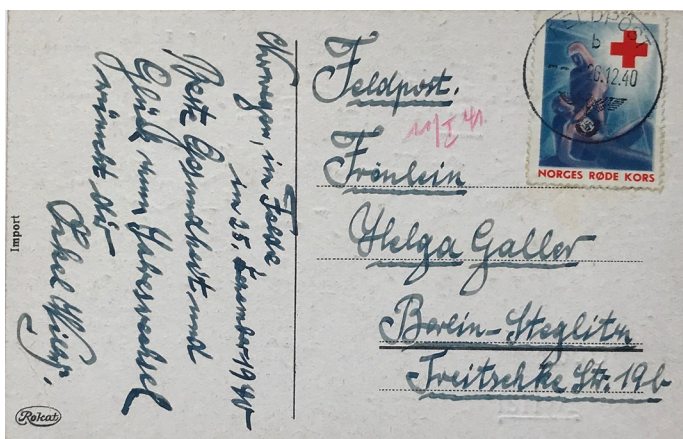 Norwegen, im Felde
im 25. Dezember 1940
Beste Gesundheit und
Glück zum Jahreswechsel
wünscht dir
Onkel Willy.
Import
Rokat
Feldpost.
11/I 41
Fräulein
Helga Galler
Berlin-Steglitz
Treitschke Str. 19b
FELDPOST
b
26.12.40
NORGES RØDE KORS